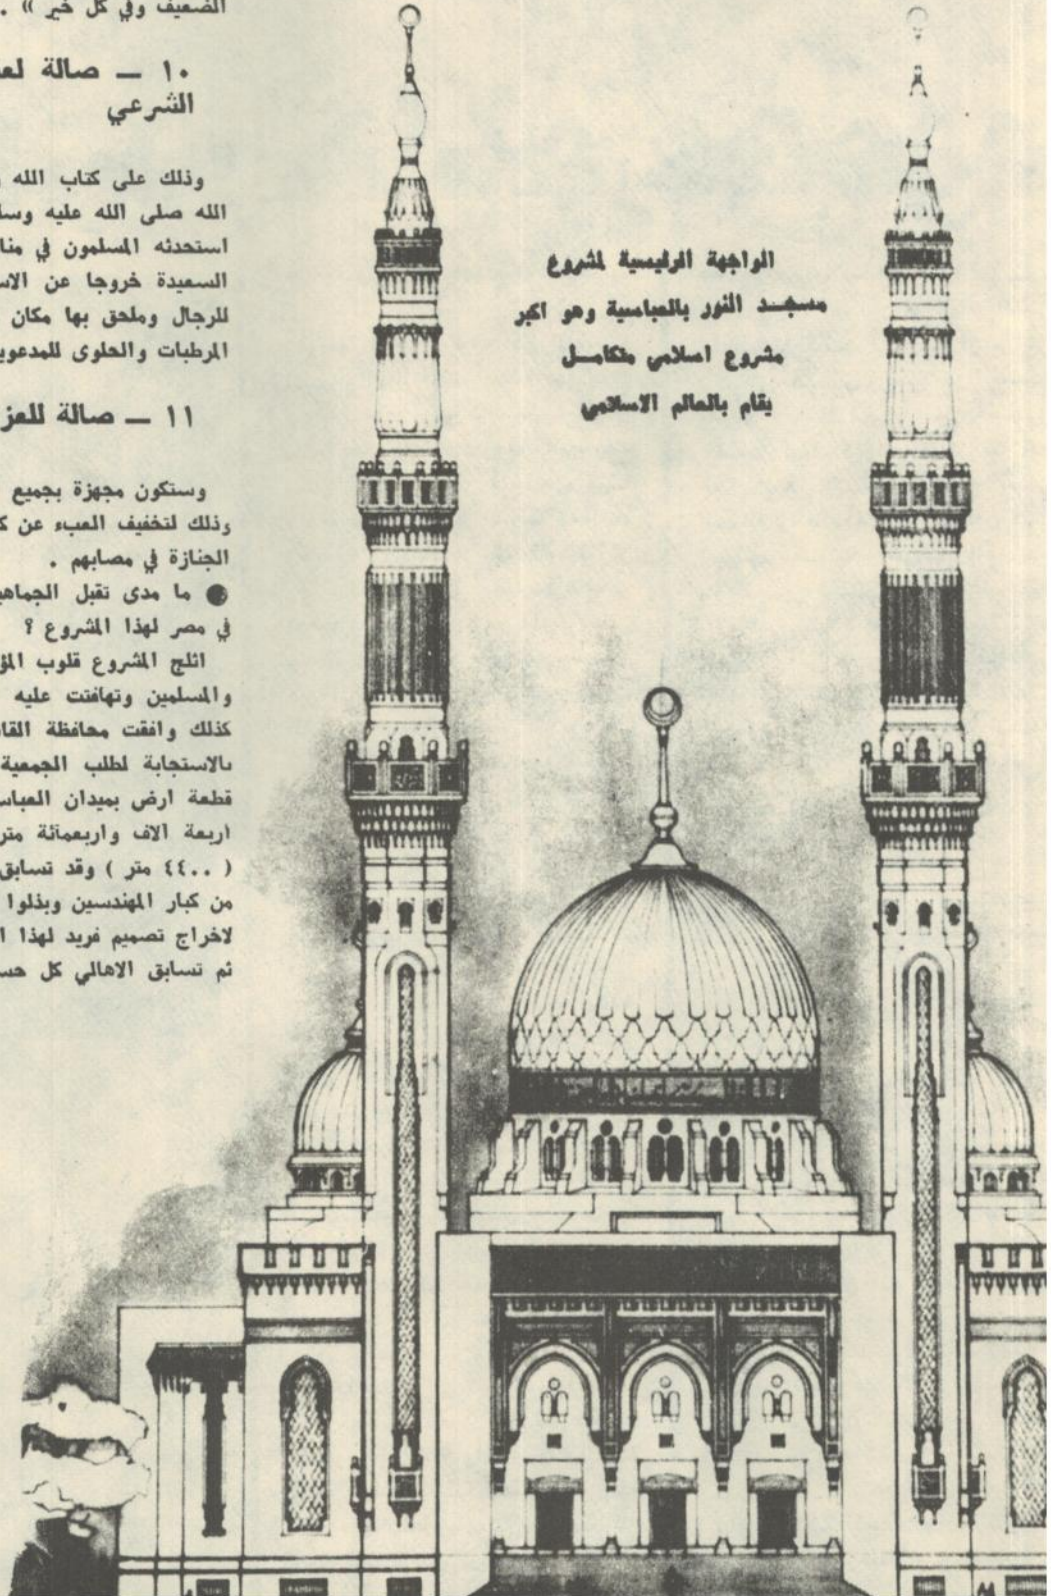 الضعيف وفي كل خير » .
١٠ — صالة لعـ
الشرعي
وذلك على كتاب الله
الله صلى الله عليه وسلـ
استحدثه المسلمون في منا
السعيدة خروجا عن الاسـ
للرجال وملحق بها مكان
المرطبات والحلوى للمدعويـ
١١ — صالة للعز
وستكون مجهزة بجميع
وذلك لتخفيف العبء عن كـ
الجنازة في مصابهم .
● ما مدى تقبل الجماهيـ
في مصر لهذا المشروع ؟
اثلج المشروع قلوب المؤ
والمسلمين وتهافتت عليه
كذلك وافقت محافظة القا
بالاستجابة لطلب الجمعية
قطعة ارض بميدان العباسـ
اربعة آلاف واربعمائة متر
( ٤٤٠٠ متر ) وقد تسابق
من كبار المهندسين وبذلوا
لاخراج تصميم فريد لهذا ا
ثم تسابق الاهالي كل حسـ
الواجهة الرئيسية لمشروع
مسجـد النور بالعباسية وهو اكبر
مشروع اسلامي متكامـل
يقام بالعالم الاسلامي